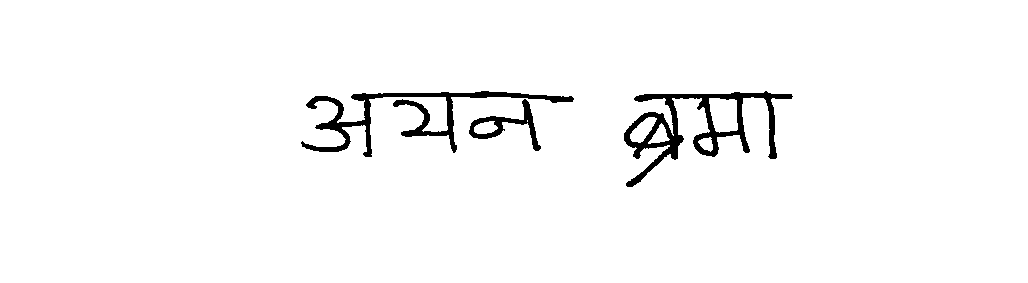 अयन ब्रमा